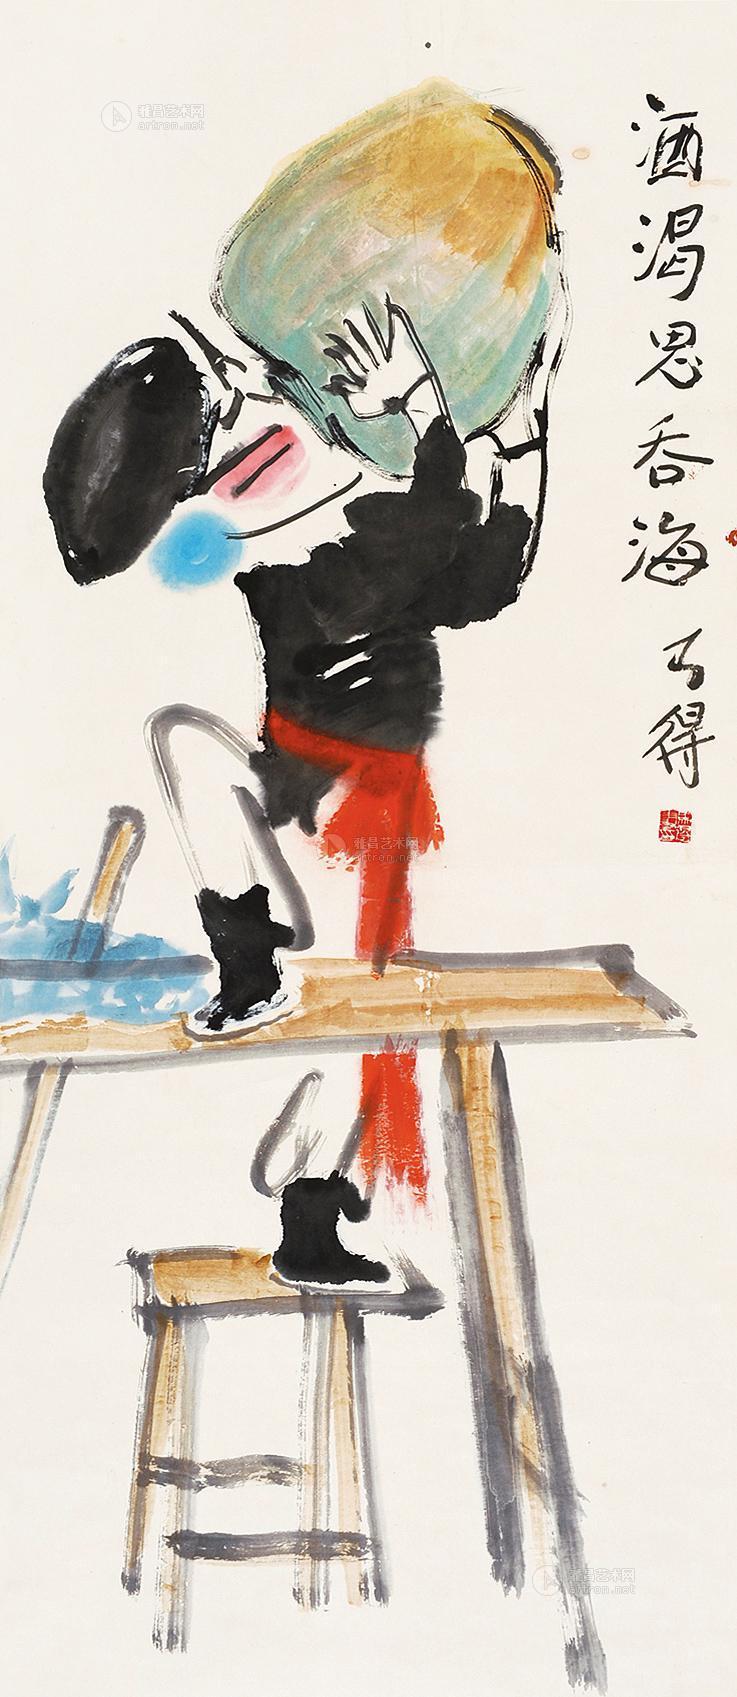 酒渴思吞海 丁得
雅昌艺术网
artron.net
雅昌艺术网
artron.net
雅昌艺术网
artron.net